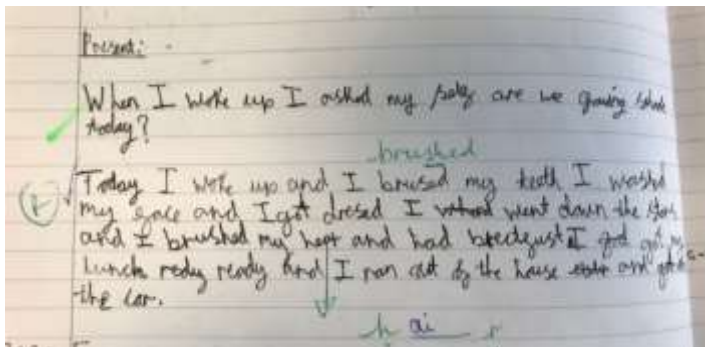 Present:
When I woke up I asked my are we going
today?
brushed
Today I woke up and I brused my teeth I washd
my face and I got dresed I went down the stars
and I brushed my hear and had brecfust I got my
Lunch redy ready and I ran out of the house and got
the car.
h ai r